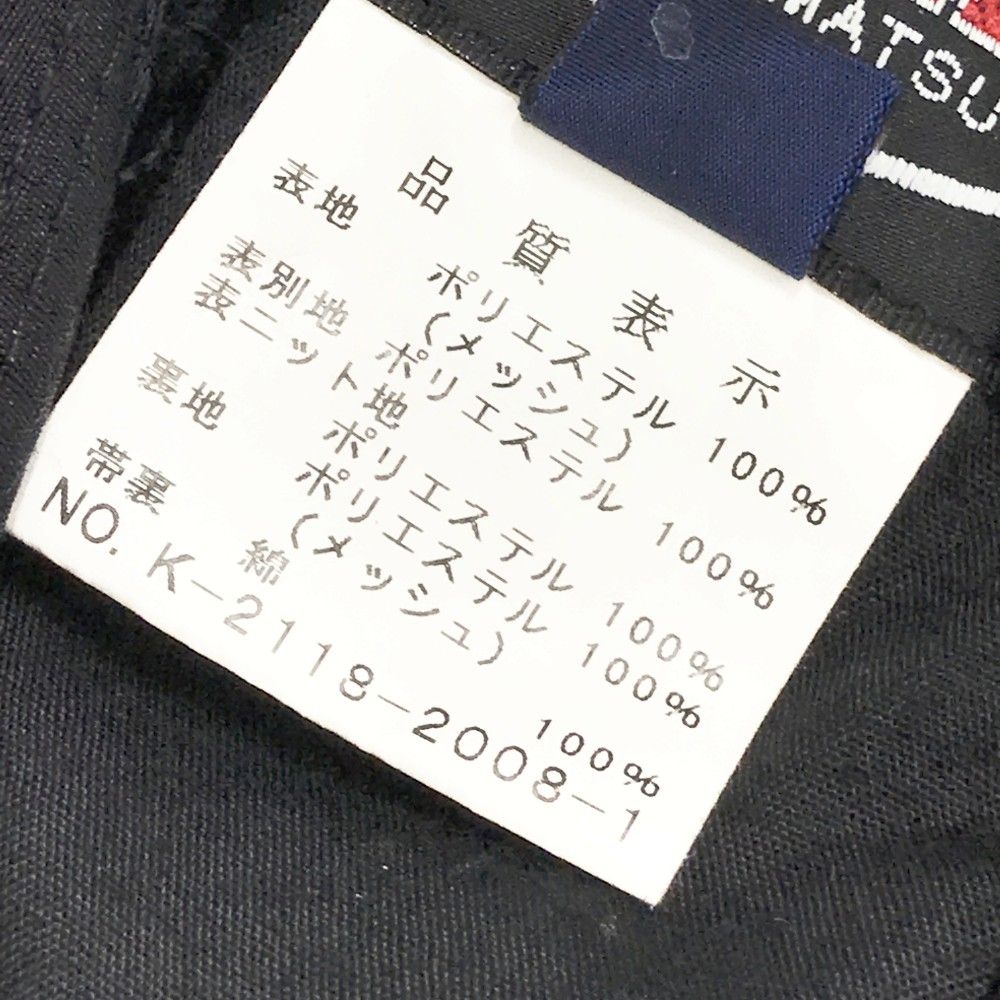 MATSU
品質表示
表地 ポリエステル 100%
(メッシュ)
表別地 ポリエステル 100%
表ニット地
ポリエステル 100%
裏地 ポリエステル 100%
(メッシュ)
帯裏 綿 100%
NO. K-2118-2008-1